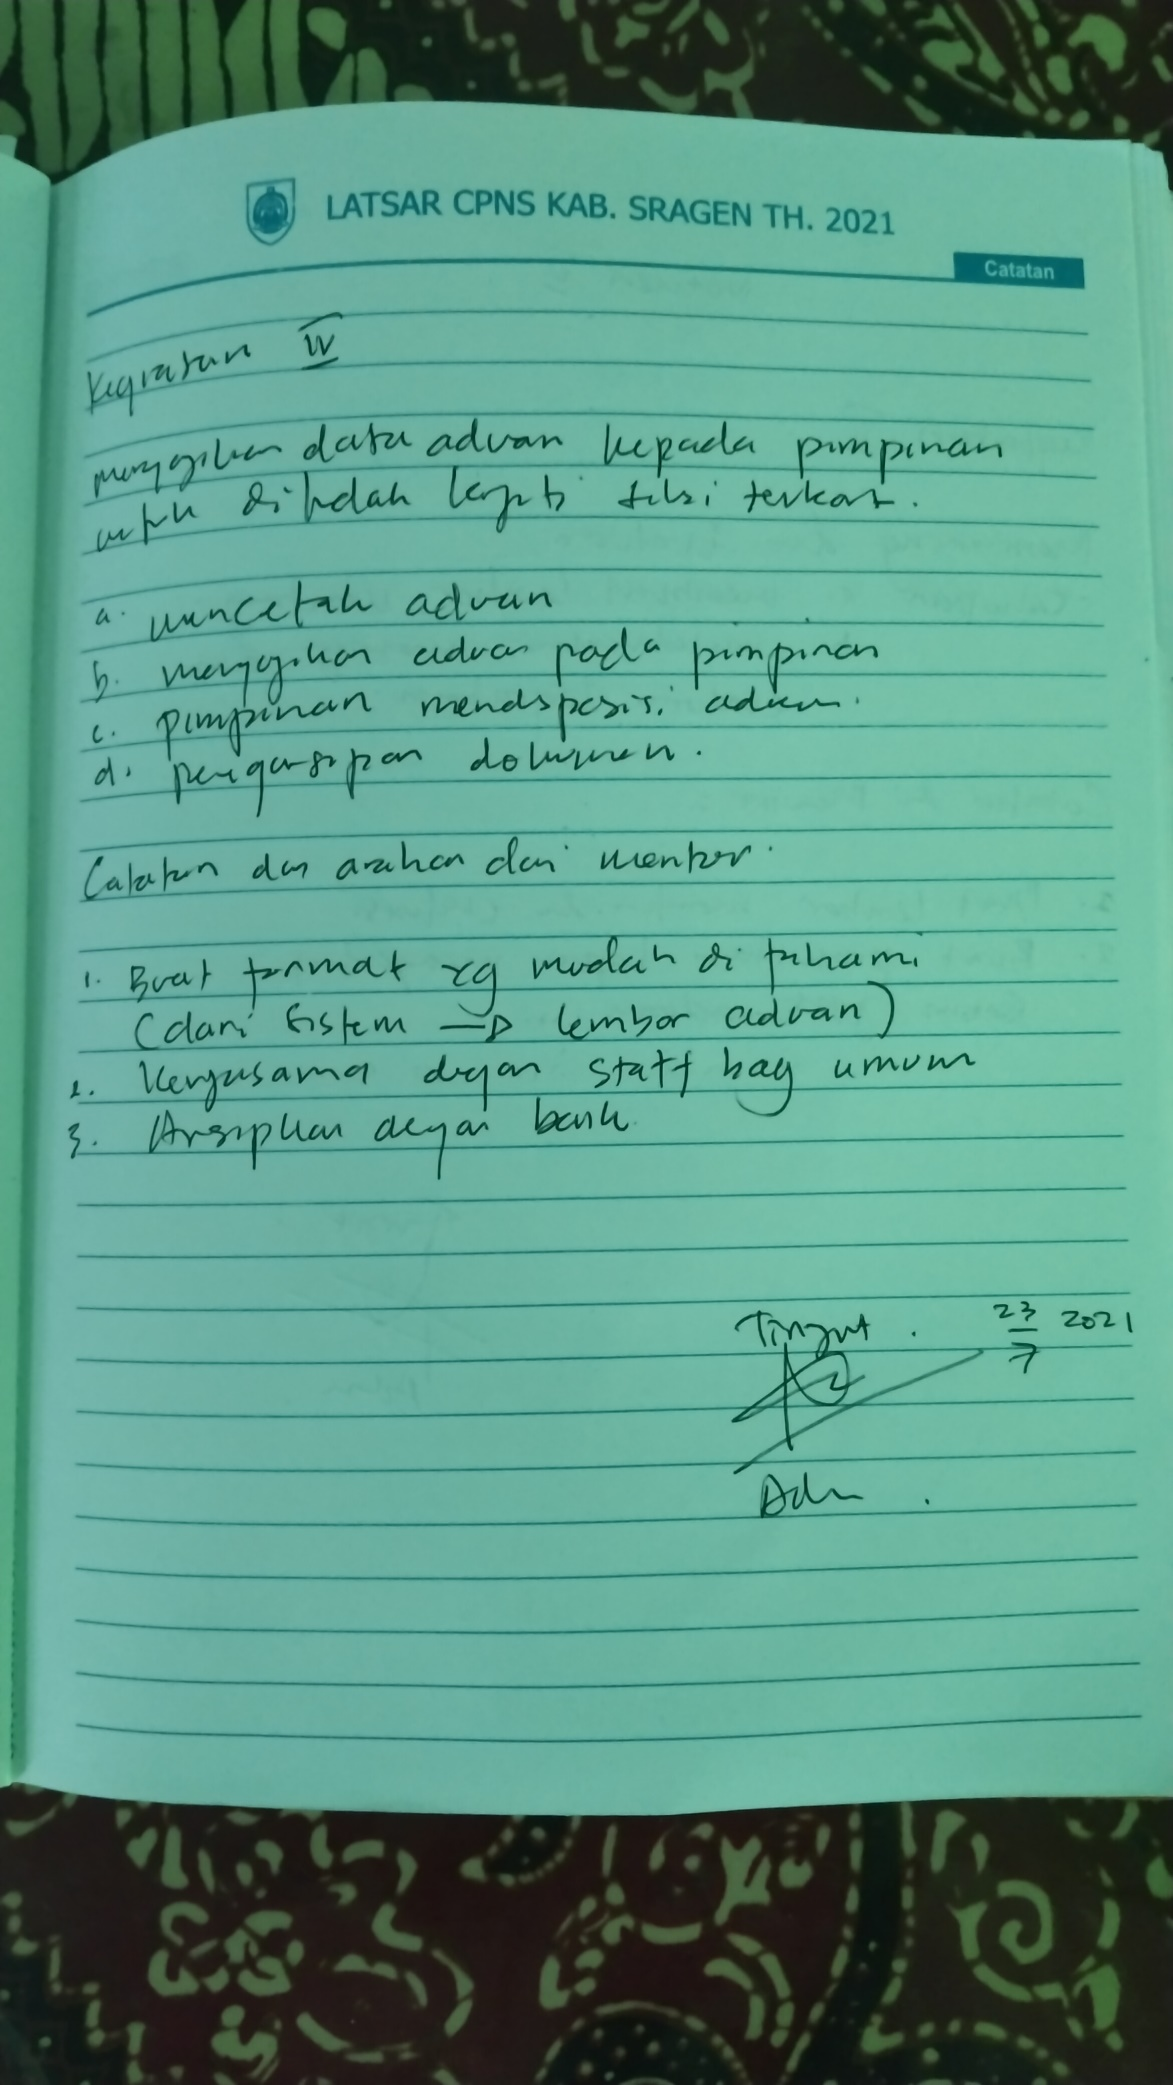 LATSAR CPNS KAB. SRAGEN TH. 2021
Catatan
Kegiatan IV
menyajikan data aduan kepada pimpinan
untuk ditindak lanjuti seksi terkait.
a. mencetak aduan
b. menyajikan aduan pada pimpinan
c. pimpinan mendisposisi aduan.
d. pengarsipan dokumen.
Catatan dan arahan dari mentor.
1. Buat format yg mudah di fahami
(dari sistem → lembar aduan)
2. Kerjasama dengan staff bag umum
3. Arsipkan dengan baik
23/7 2021